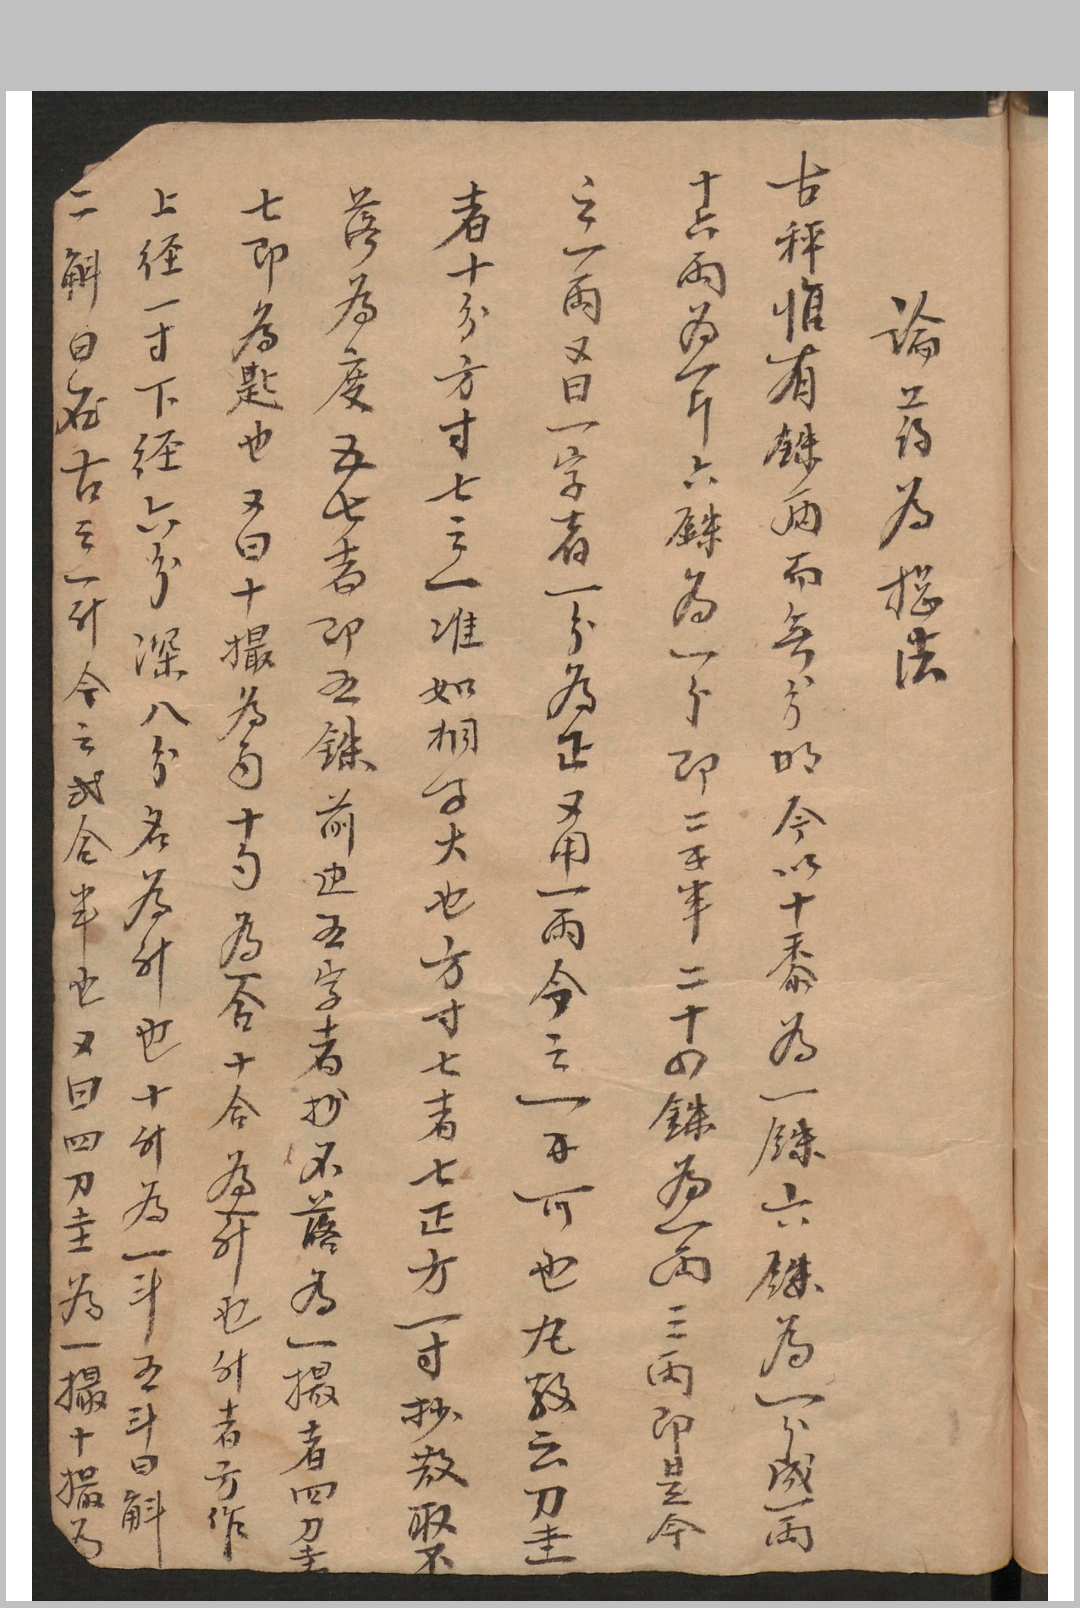 論药為摠法
古秤惟有銖兩而無分明今以十黍為一銖六銖為一分成一兩
十六兩為一斤六銖為一分即二千半二十四銖為一兩三兩即是今
之一兩又曰一字者一分為正又用一兩今之一千可也九散云刀圭
者十分方寸七之一准如桐子大也方寸七者七正方一寸抄散取不
落為度五七者即五銖前边五字者抄不落為一撮者四刀圭
七即為匙也又曰十撮為勺十勺為一合十合為一升也升者方作
上径一寸下径六分深八分名為升也十升為一斗五斗曰斛
二斛曰石古之一升今之弍合半也又曰四刀圭為一撮十撮為